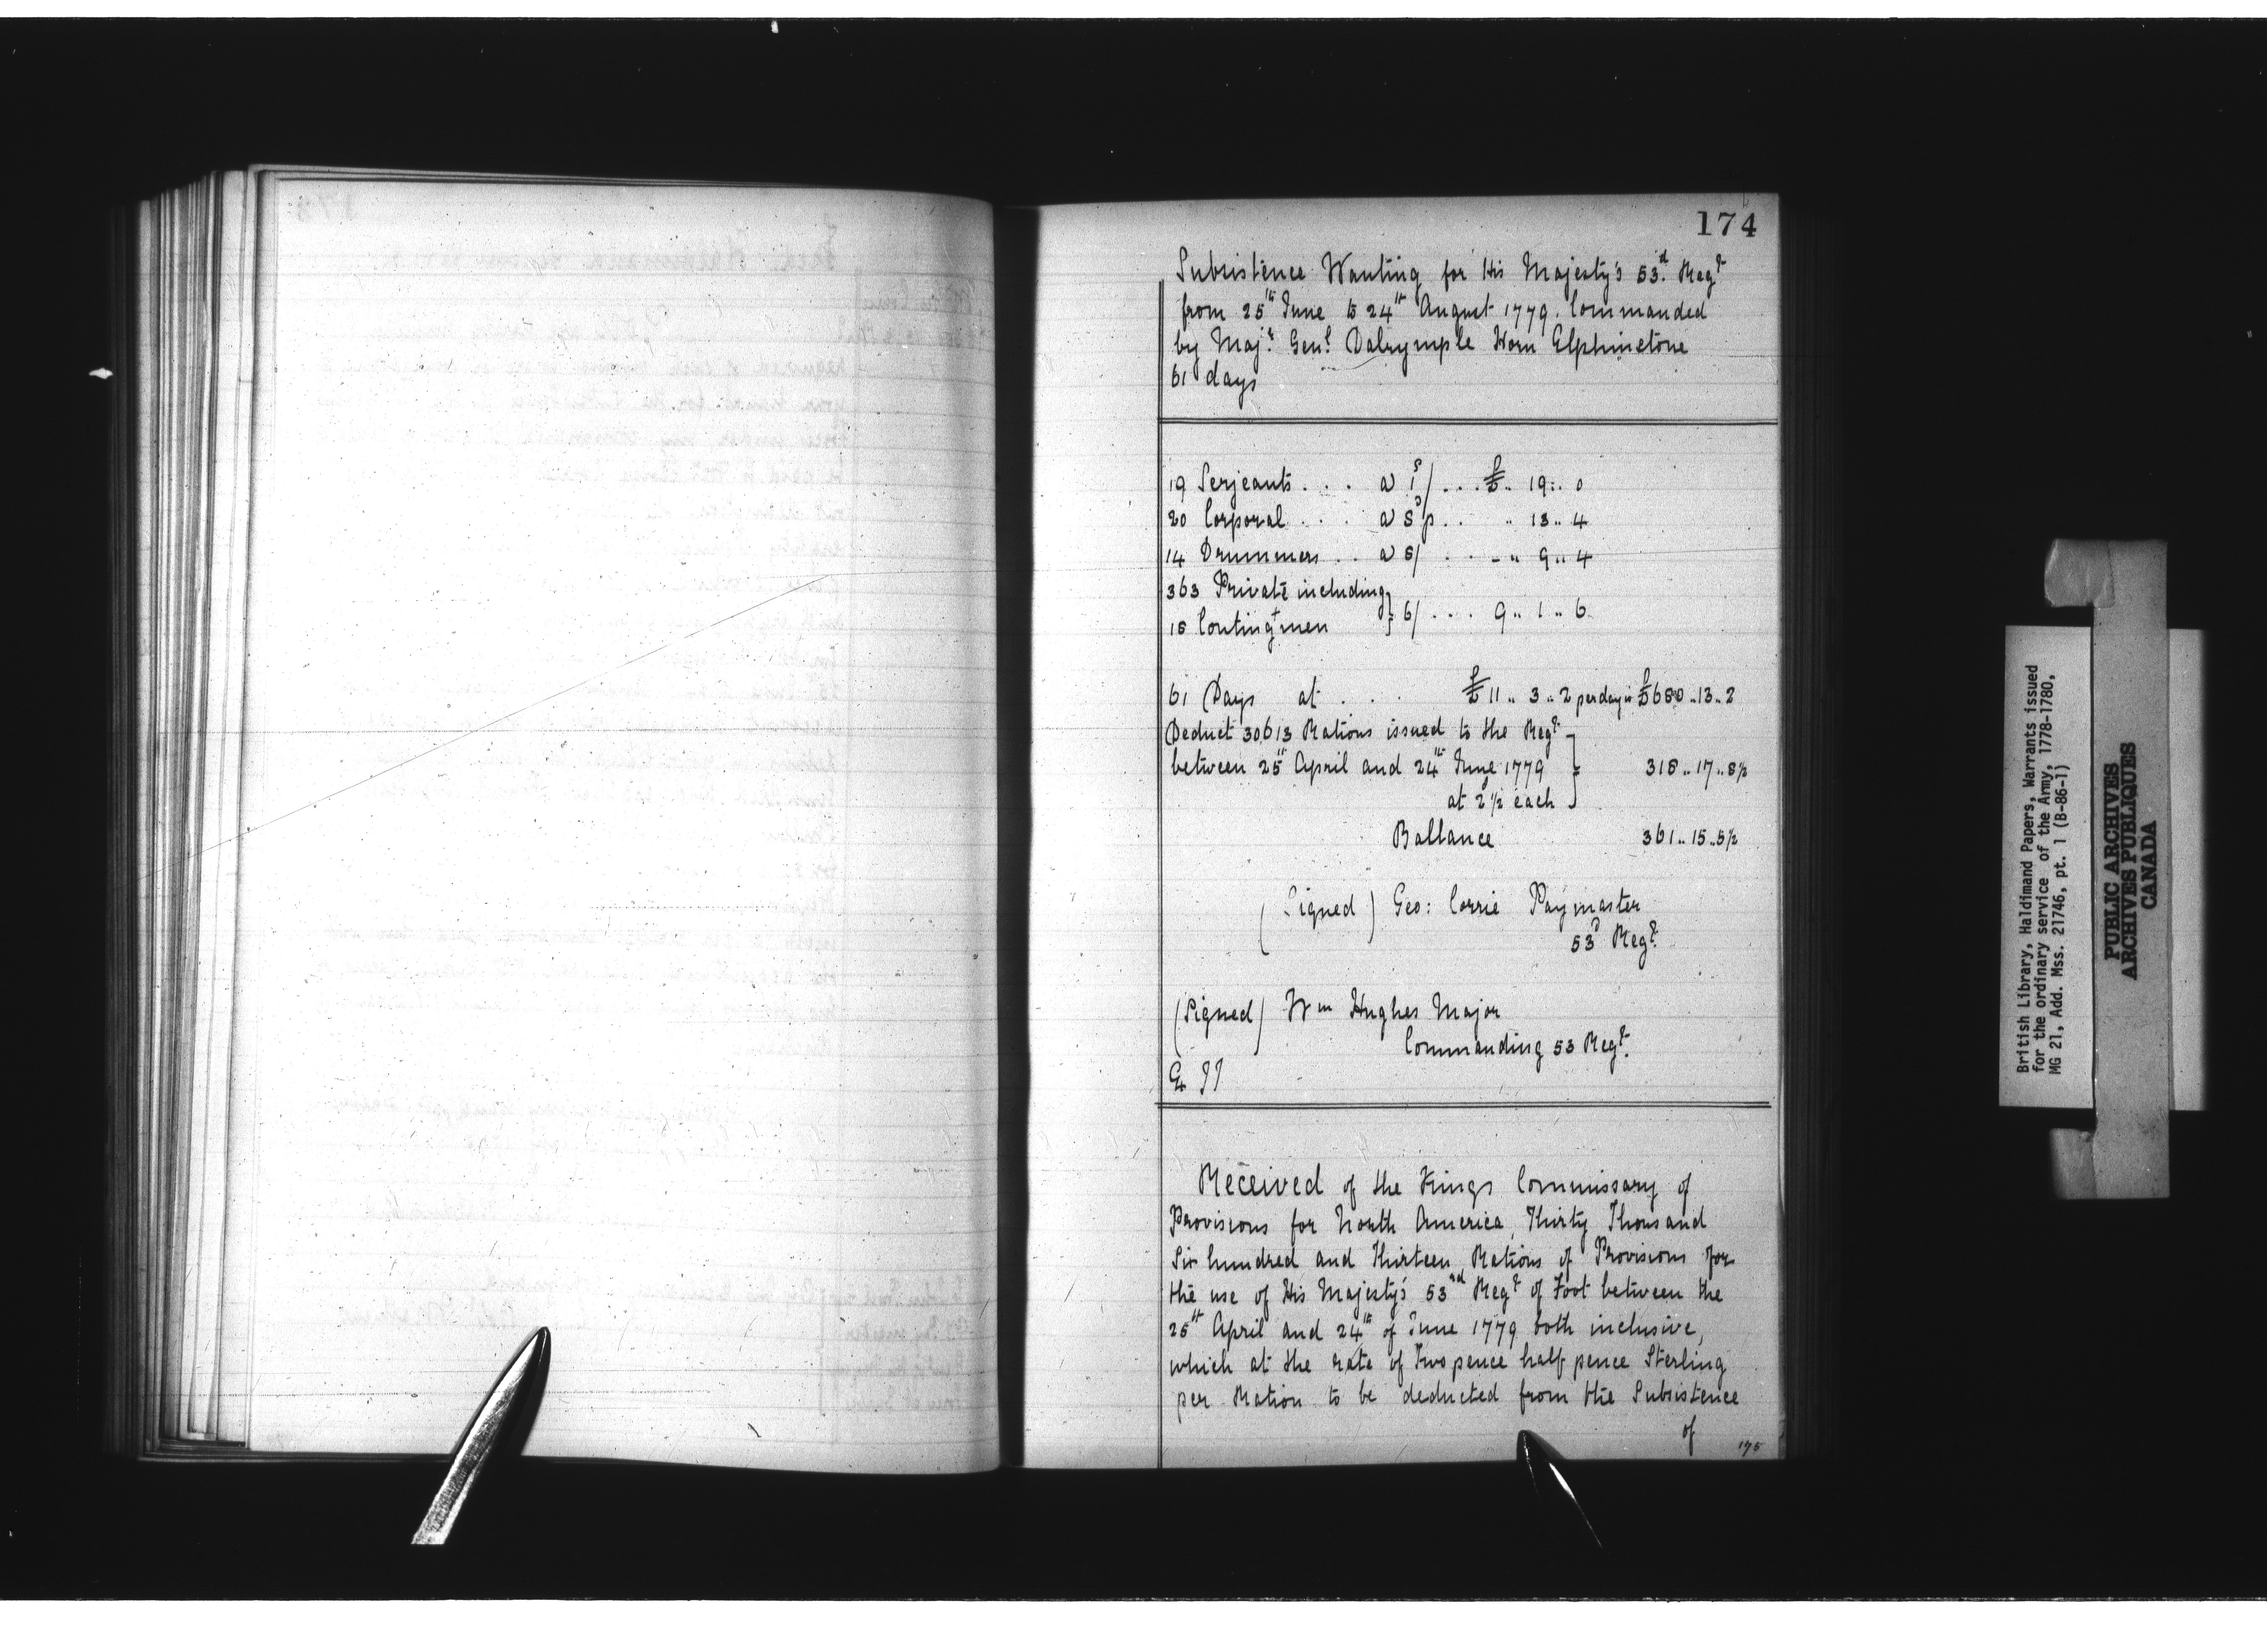 174
Subsistence Wanting for His Majesty's 53.d Regt
from 25th June to 24th August 1779. Commanded
by Majr. Genl. Dalrymple Horn Elphinstone
61 days
19 Serjeants . . . a 1s/ . . . £ .. 19 .. 0
20 Corporal . . . a 8p . . .. 13 .. 4
14 Drummers . . a 8/ . . - .. 9 .. 4
363 Private including
18 Contingt men } 6/ . . . . 9 .. 1 .. 6
61 Days at . . £ 11 .. 3 .. 2 per day is £680 .. 13 .. 2
Deduct 30613 Rations issued to the Regt
between 25th April and 24th June 1779 } 318 .. 17 .. 8½
at 2½ each
Ballance 361 .. 15 .. 5½
(Signed) Geo: Corrie Paymaster
53d Regt.
(Signed) Wm Hughes Major
Commanding 53 Regt.
Received of the Kings Commissary of
Provisions for North America, Thirty Thousand
Six hundred and Thirteen Rations of Provisions for
the use of His Majesty's 53rd Regt of Foot between the
25th April and 24th of June 1779 both inclusive,
which at the rate of Two pence half pence Sterling
per Ration to be deducted from the Subsistence
of
175
British Library, Haldimand Papers, Warrants issued
for the ordinary service of the Army, 1778-1780,
MG 21, Add. Mss. 21746, pt. 1 (B-86-1)
PUBLIC ARCHIVES
ARCHIVES PUBLIQUES
CANADA